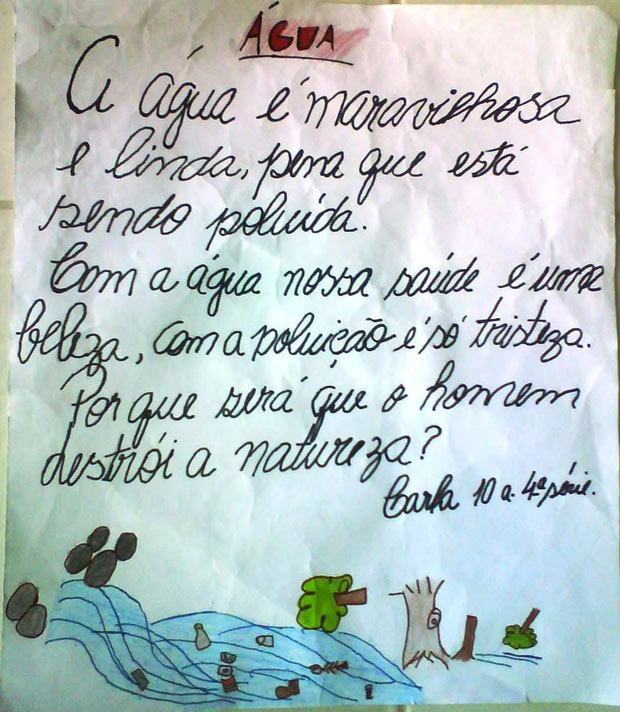 ÁGUA
A água é maravilhosa
e linda, pena que está
sendo poluída.
Com a água nossa saúde é uma
beleza, com a poluição é só tristeza.
Por que será que o homem
destrói a natureza?
Carla 10 a. 4ª série.